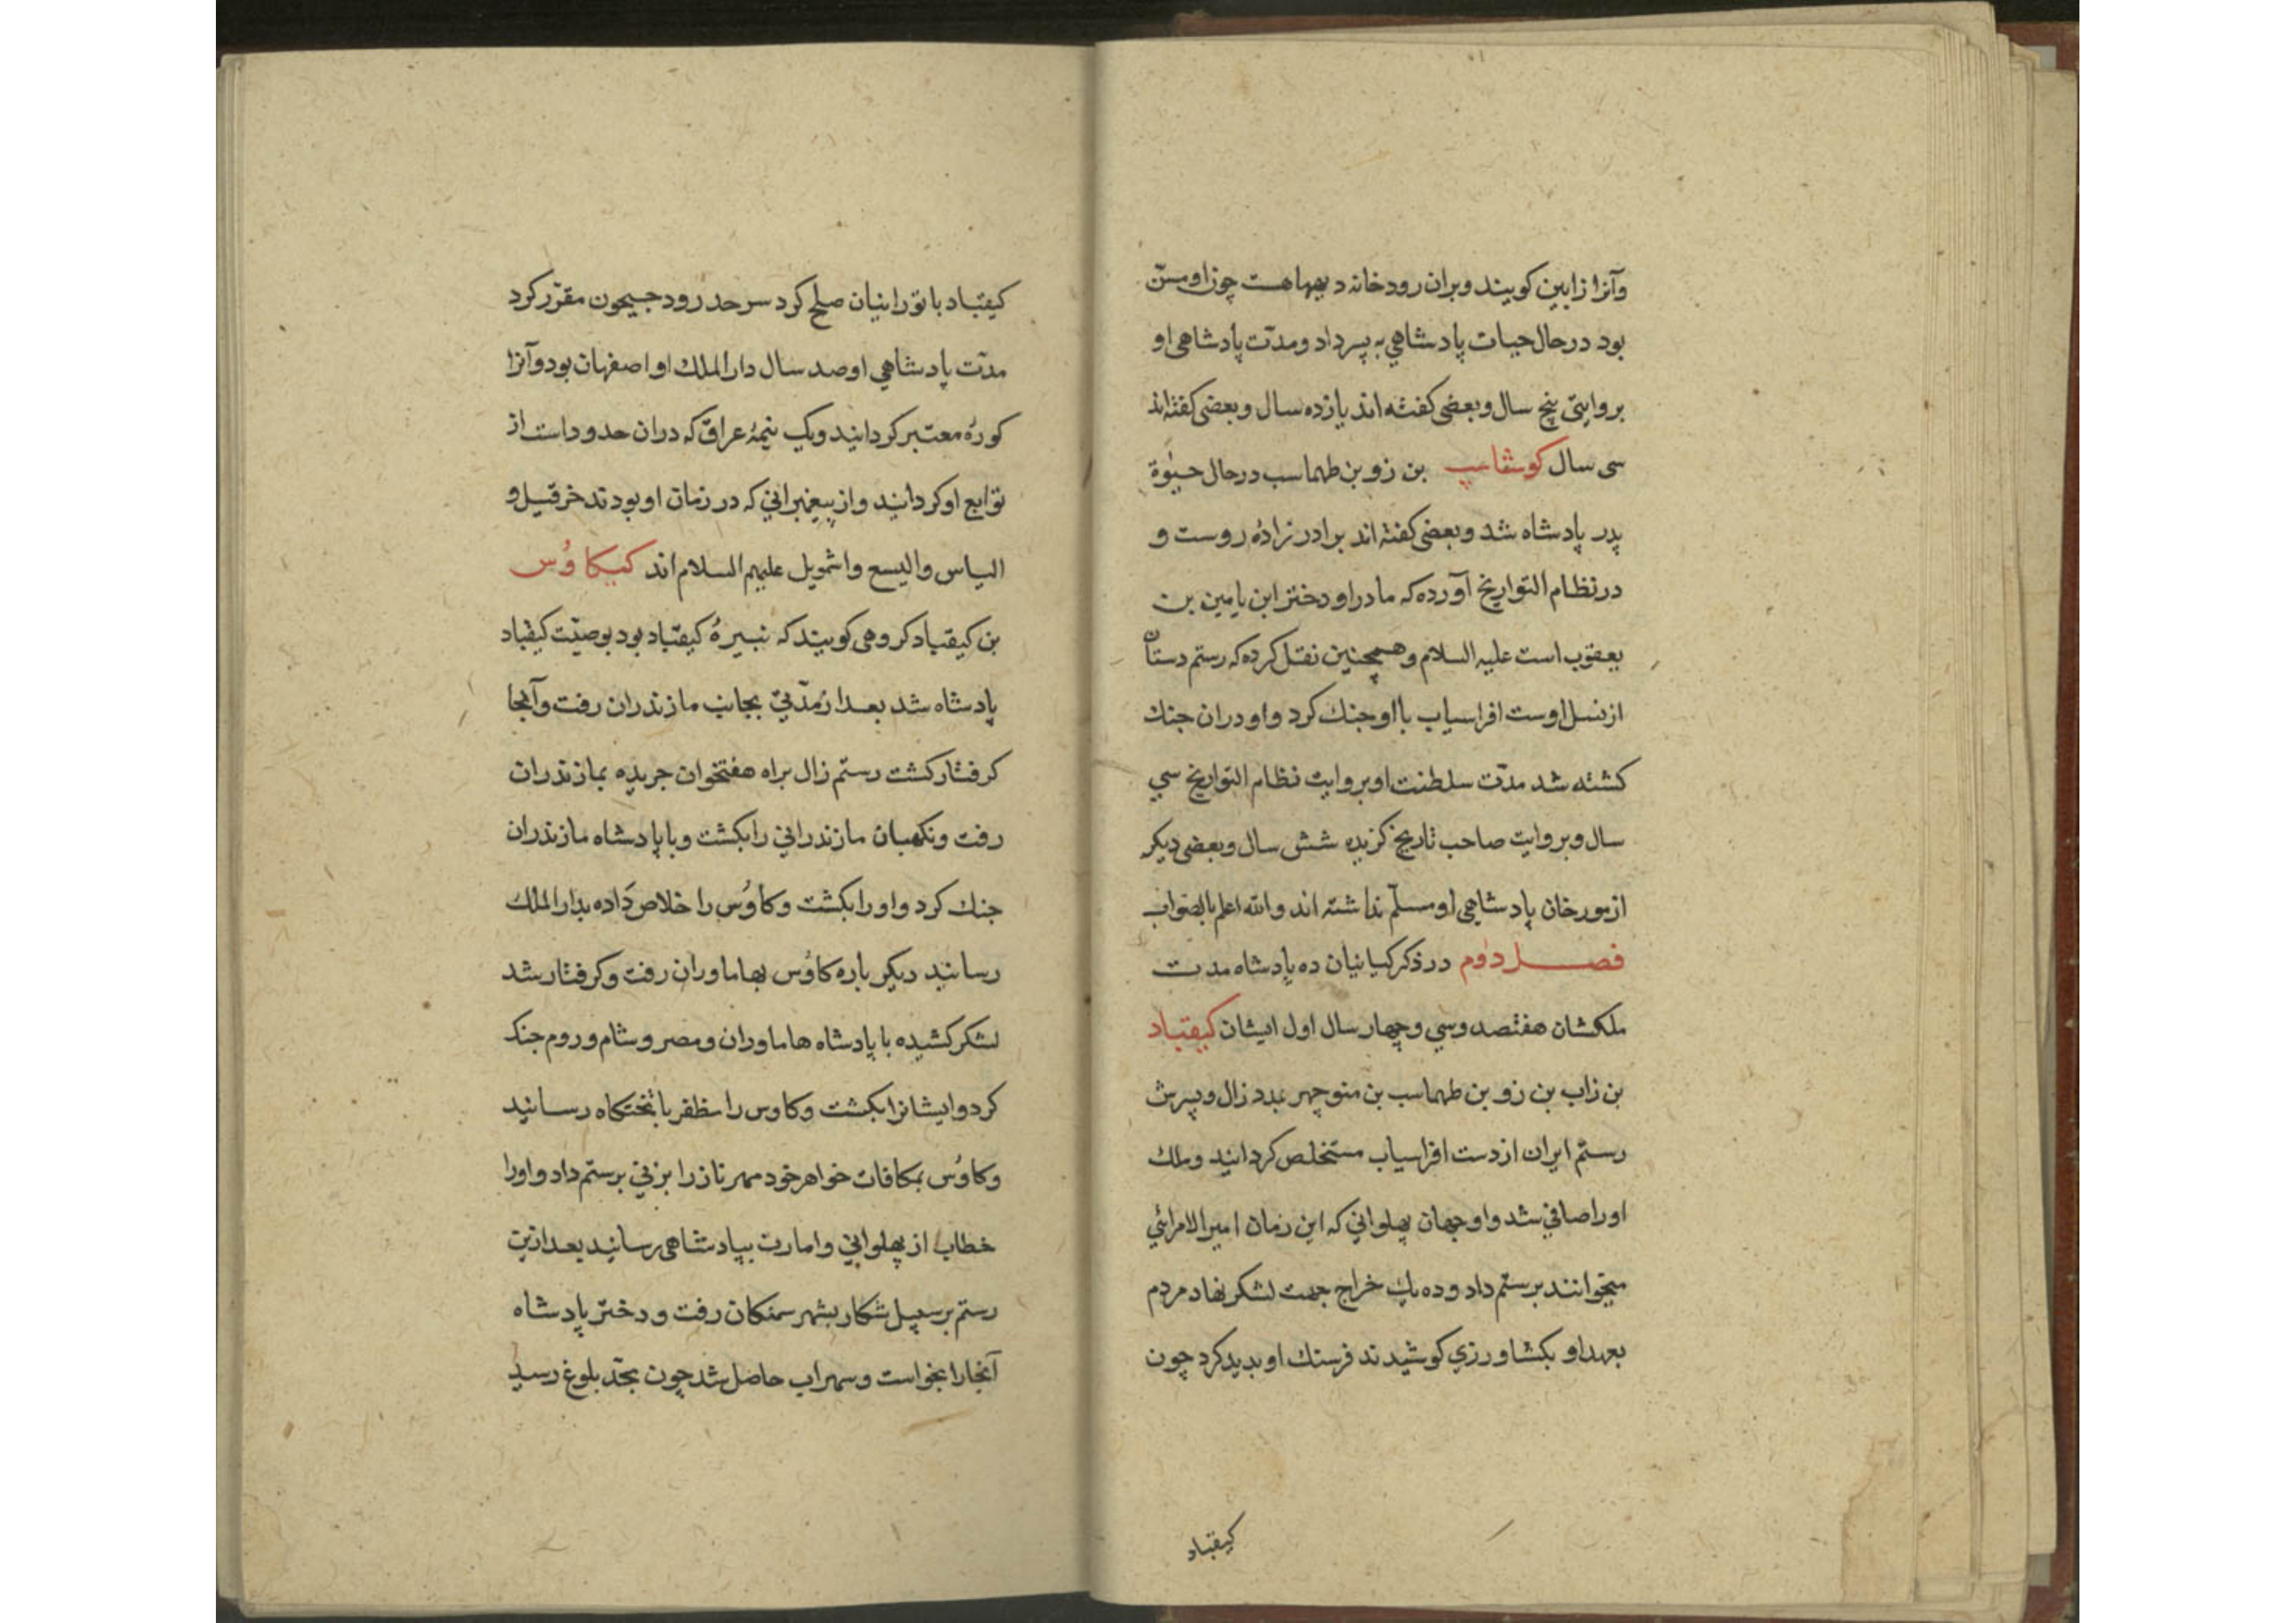 وآنرا زابین کویند و بران رودخانه دیهها هست چون او مسنّ
بود در حال حیات پادشاهي به پسر داد و مدّت پادشاهی او
بروایتی پنج سال و بعضی کفته اند یازده سال و بعضی کفته اند
سی سال کوشقاسپ بن زو بن طهماسب در حال حیوٰة
پدر پادشاه شد و بعضی کفته اند برادر زادهٔ روست و
در نظام التواریخ آورده که مادر او دختر ابن یامین بن
یعقوب است علیه السلام و همچنین نقل کرده که رستم دستان
از نسل اوست افراسیاب با او جنك کرد و او دران جنك
کشته شد مدّت سلطنت او بروایت نظام التواریخ سي
سال و بروایت صاحب تاریخ کزیده شش سال و بعضی دیکر
از مورخان پادشاهی او مسلّم نداشته اند والله اعلم بالصواب
فصل دوم در ذکر کیانیان ده پادشاه مدت
ملکشان هفتصد و سي و چهار سال اول ایشان کیقباد
بن زاب بن زو بن طهماسب بن منوچهر بمدد زال و پسرش
رستم ایران از دست افراسیاب مستخلص کردانید و ملك
اورا صافي شد و او جهان پهلواني که این زمان امیرالامرائي
میخوانند برستم داد و ده یك خراج جهت لشکر نهاد مردم
بعهد او بکشاورزي کوشیدند فرسنك او بدید کرد چون
کیقباد
کیقباد با تورانیان صلح کرد سرحد رود جیحون مقرّر کرد
مدّت پادشاهي او صد سال دارالملك او اصفهان بود و آنرا
کورهٔ معتبر کردانید و یك نیمهٔ عراق که دران حدود است از
توابع او کردانید و از پیغمبراني که در زمان او بودند خرقیل و
الیاس والیسع واشمویل علیهم السلام اند کیکاؤس
بن کیقباد کروهی کویند که نبیرهٔ کیقباد بود بوصیّت کیقباد
پادشاه شد بعد از مدّتي بجانب مازندران رفت و آنجا
کرفتار کشت رستم زال براه هفتخوان جریده بمازندران
رفت ونکهبان مازندراني را بکشت و با پادشاه مازندران
جنك کرد و اورا بکشت و کاؤس را خلاص داده بدارالملك
رسانید دیکر باره کاؤس بهاماوران رفت و کرفتار شد
لشکر کشیده با پادشاه هاماوران و مصر و شام و روم جنك
کرد و ایشانرا بکشت و کاوس را مظفر با تختکاه رسانید
وکاؤس بمکافات خواهر خود مهرناز را بزني برستم داد و اورا
خطاب از پهلواني و امارت بپادشاهی رسانید بعد ازین
رستم بر سبیل شکار بشهر سمنکان رفت و دختر پادشاه
آنجا را بخواست و سهراب حاصل شد چون بحدّ بلوغ رسید